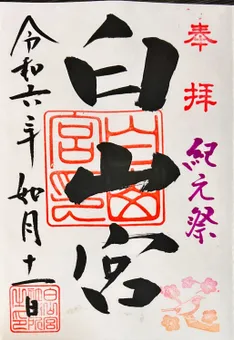 奉拝
紀元祭
白山宮
白山宮印
令和六年
如月十一日